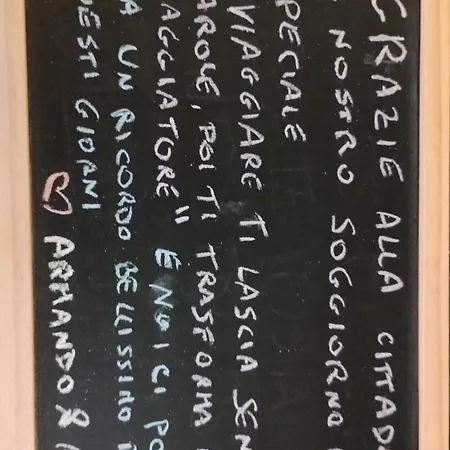 GRAZIE ALLA CITTAD
NOSTRO SOGGIORNO
PECIALE
VIAGGIARE TI LASCIA SEN
AROLE, POI TI TRASFORMA
AGGIATORE" E NOI CI PO
A UN RICORDO BELLISSIMO
ESTI GIORNI
♡ ARMANDO &